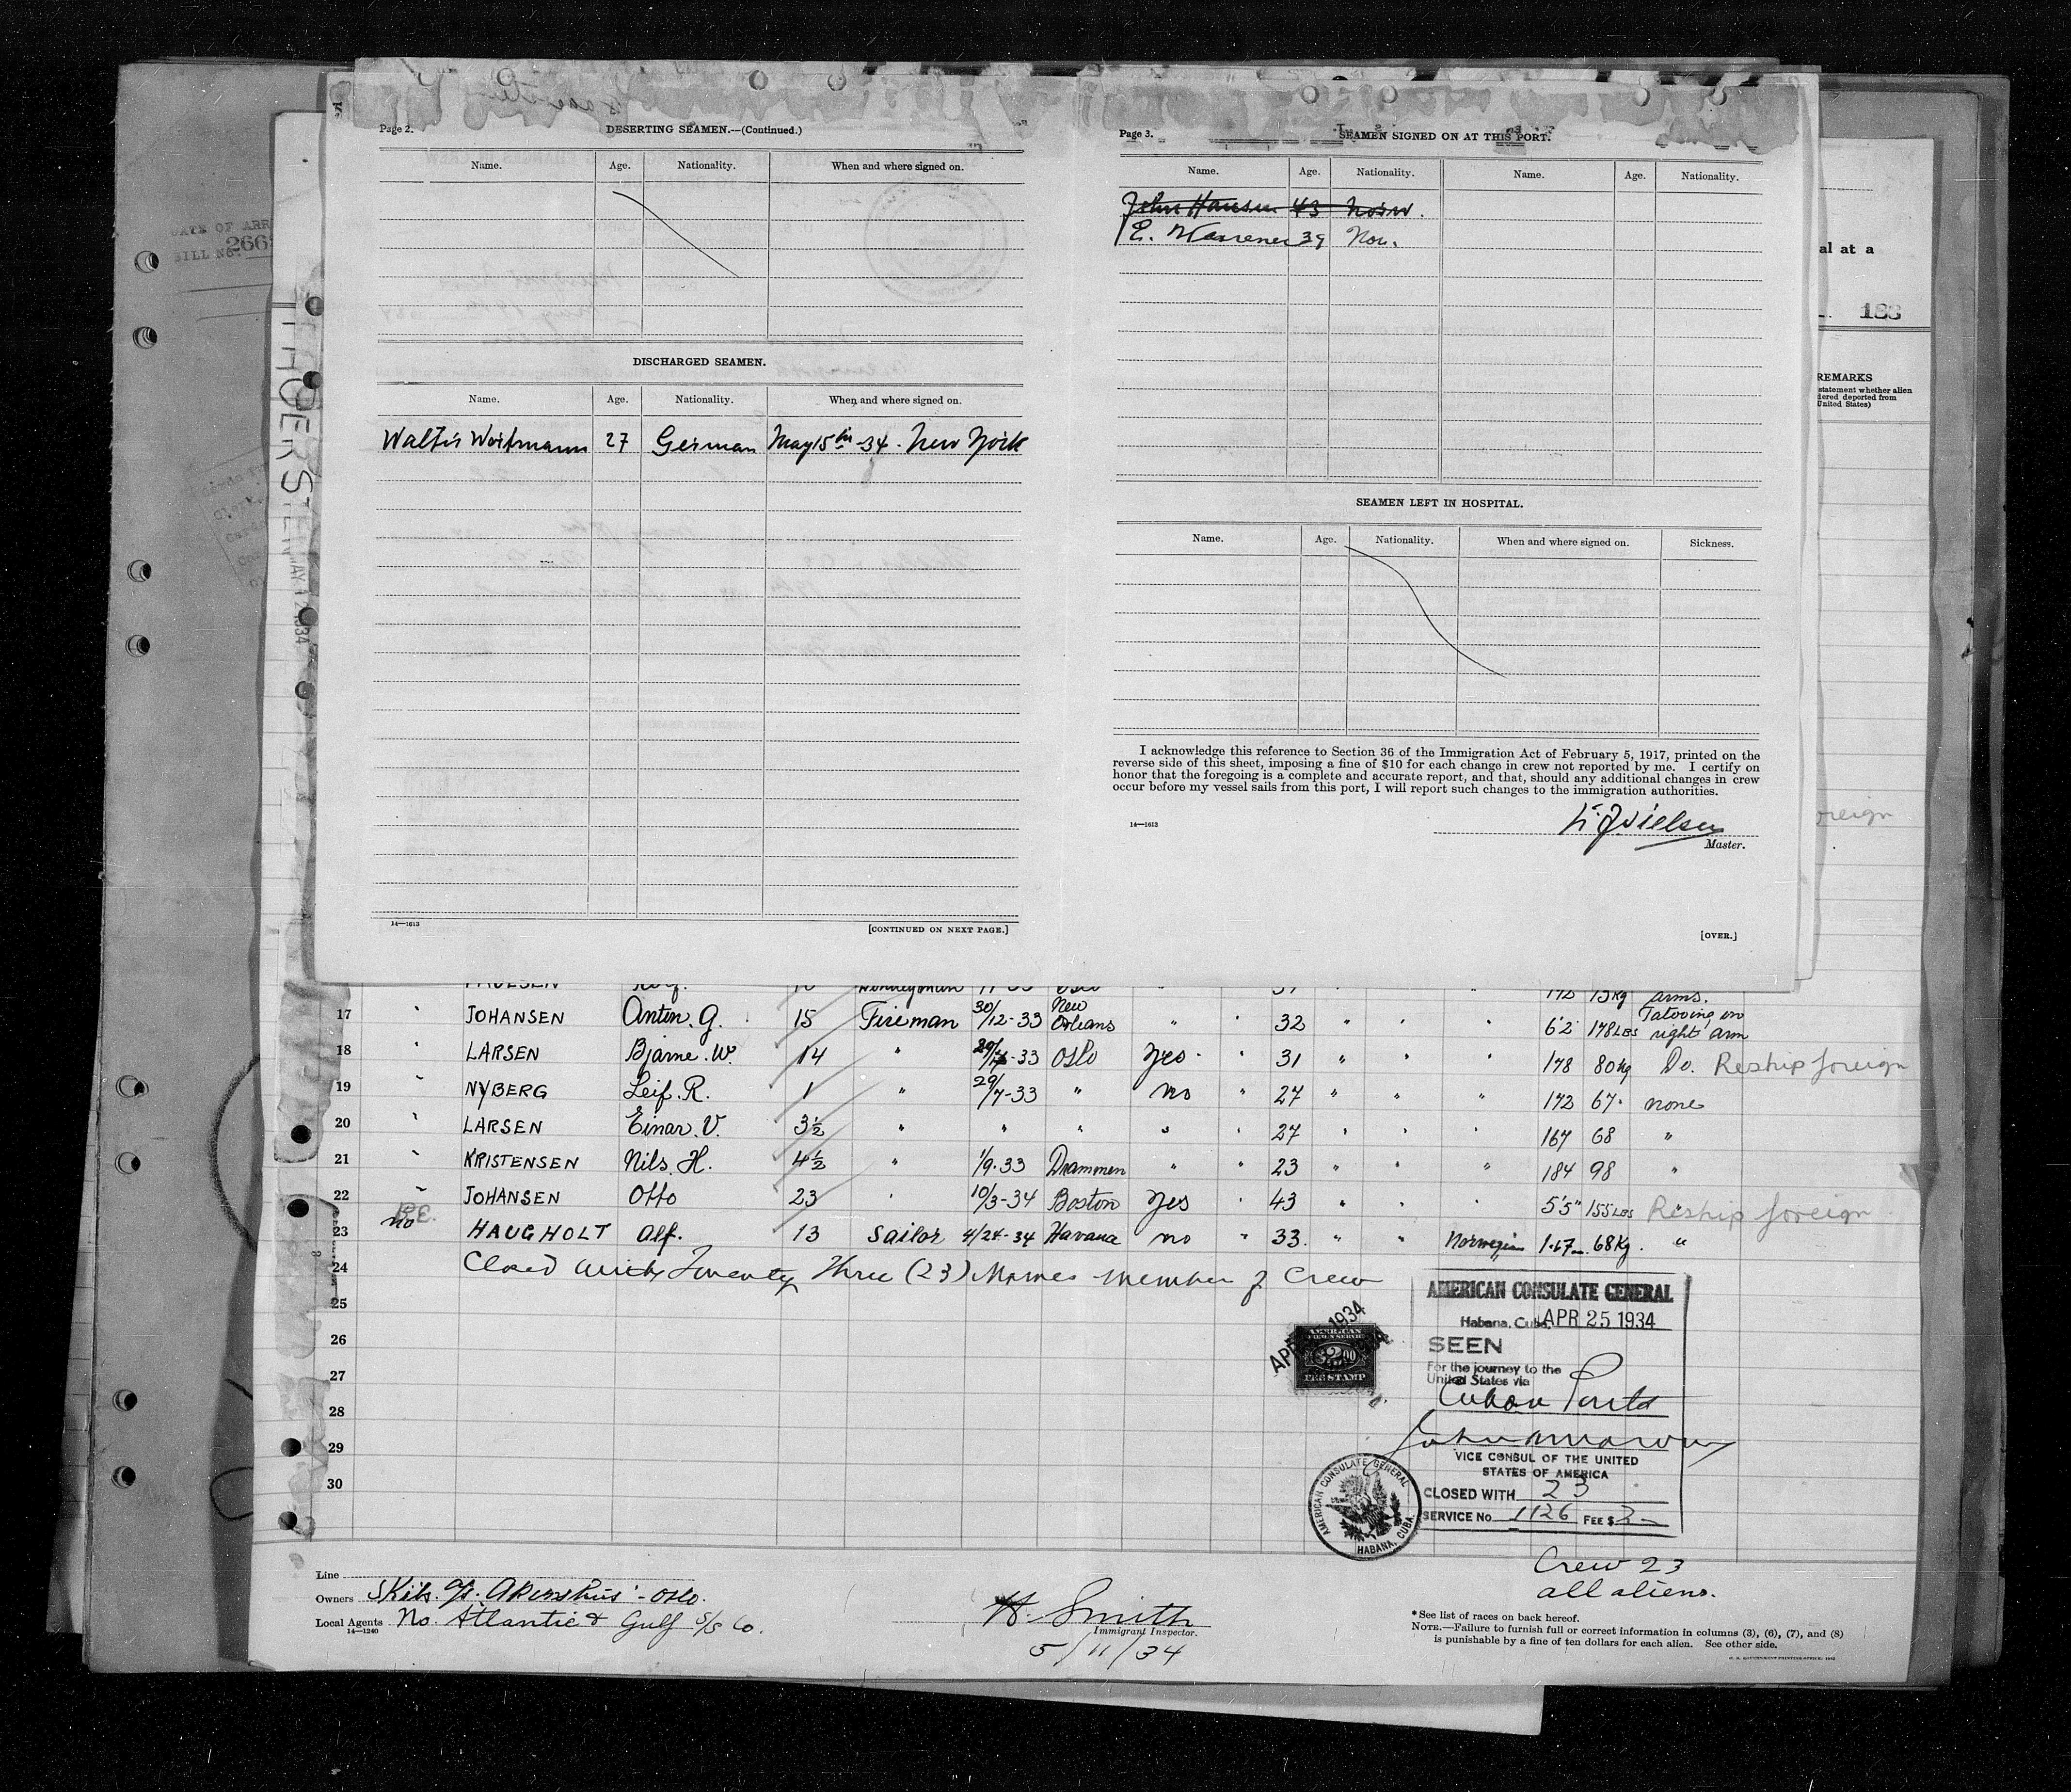 DATE OF ARR
BILL No. 266
THOERSTEIN
MAY 12 1934
Page 2.
DESERTING SEAMEN.—(Continued.)
Name. Age. Nationality. When and where signed on.
DISCHARGED SEAMEN.
Name. Age. Nationality. When and where signed on.
27 German May 15th -34. New York
14—1613
[CONTINUED ON NEXT PAGE.]
Page 3.
SEAMEN SIGNED ON AT THIS PORT.
Name. Age. Nationality. Name. Age. Nationality.
John Hansen 43 Norw.
E. 39 Nor.
SEAMEN LEFT IN HOSPITAL.
Name. Age. Nationality. When and where signed on. Sickness.
I acknowledge this reference to Section 36 of the Immigration Act of February 5, 1917, printed on the
reverse side of this sheet, imposing a fine of $10 for each change in crew not reported by me. I certify on
honor that the foregoing is a complete and accurate report, and that, should any additional changes in crew
occur before my vessel sails from this port, I will report such changes to the immigration authorities.
14—1613
Nielsen
Master.
[OVER.]
al at a
183
REMARKS
statement whether alien
dered deported from
United States)
oreign
172 75 Kg arms.
17 " JOHANSEN Anton. G. 15 Fireman 30/12-33 New Orleans " 32 " " " 6'2" 178 LBS Tatooing on right arm
18 " LARSEN Bjarne. W. 14 " 29/7-33 Oslo Yes " 31 " " " 178 80 kg Do. Reship foreign
19 " NYBERG Leif. R. 1 " 29/7-33 " no " 27 " " " 172 67 " none
20 " LARSEN Einar. V. 3½ " " " " " 27 " " " 167 68 "
21 " KRISTENSEN Nils. H. 4½ " 1/9-33 Drammen " " 23 " " " 184 98 "
22 " JOHANSEN Otto 23 " 10/3-34 Boston Yes " 43 " " " 5'5" 155 LBS " Reship foreign
23 no HAUGHOLT Alf. 13 Sailor 4/24-34 Havana no " 33 " " Norwegian 1.67m. 68 Kg. "
24 Closed with Twenty Three (23) Names member of Crew
25
26
27
28
29
30
AMERICAN CONSULATE GENERAL
Habana, Cuba, APR 25 1934
SEEN
For the journey to the
United States via
Cuban Ports
VICE CONSUL OF THE UNITED
STATES OF AMERICA
CLOSED WITH 23
SERVICE No. 1126 FEE $ 2—
AMERICAN
2.00
FEE STAMP
AMERICAN CONSULATE GENERAL
HABANA, CUBA.
Crew 23
all aliens.
Line
Owners Skibs. A/S. Akershus - Oslo.
Local Agents No. Atlantic & Gulf S/S Co.
14—1240
H. Smith
Immigrant Inspector.
5/11/34
* See list of races on back hereof.
NOTE.—Failure to furnish full or correct information in columns (3), (6), (7), and (8)
is punishable by a fine of ten dollars for each alien. See other side.